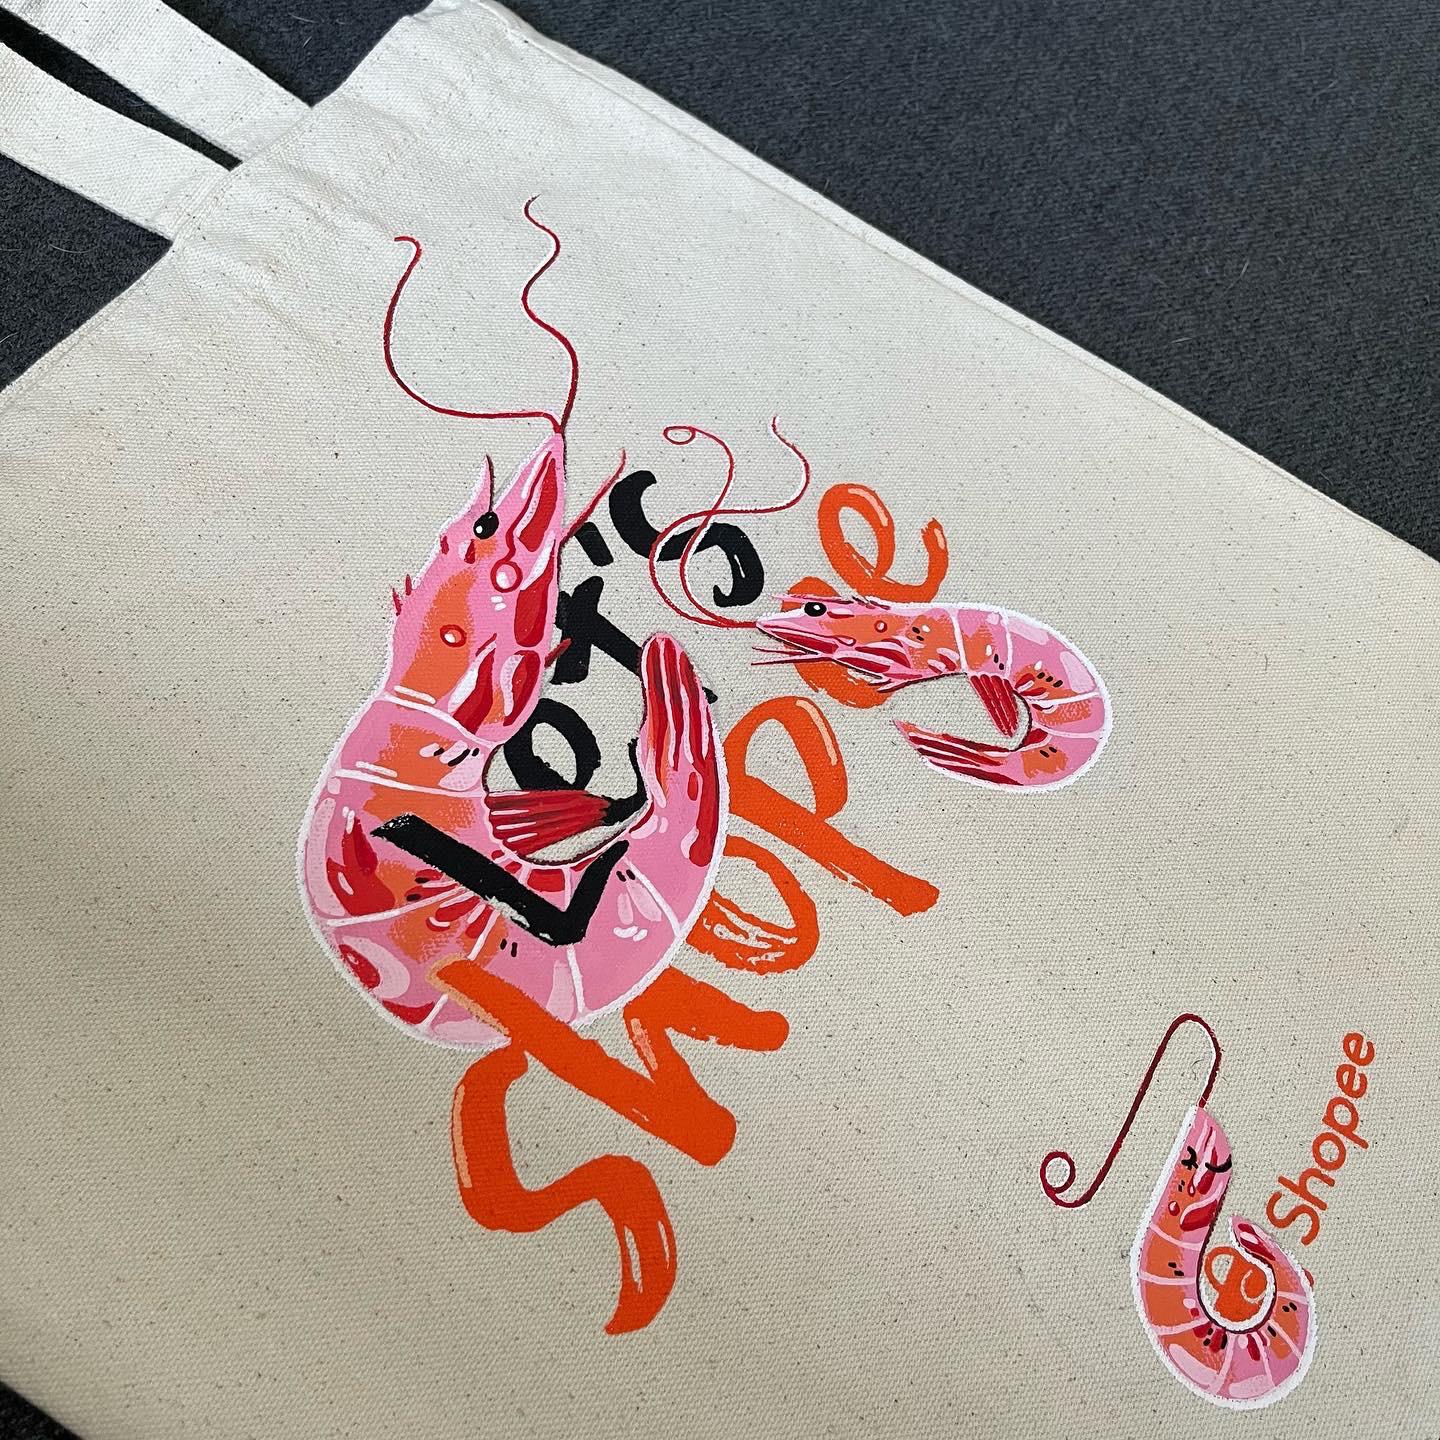 Let's
Shopee
Shopee